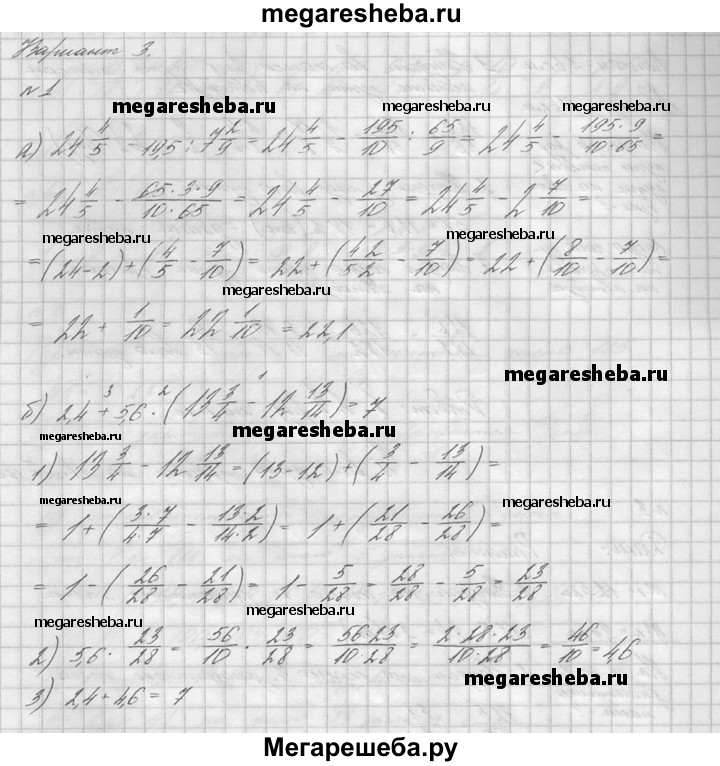 megaresheba.ru
Вариант 3.
№1
megaresheba.ru megaresheba.ru megaresheba.ru
а) 24 4/5 - 19,5 : 7 2/9 = 24 4/5 - 195/10 : 65/9 = 24 4/5 - 195·9/10·65 =
= 24 4/5 - 65·3·9/10·65 = 24 4/5 - 27/10 = 24 4/5 - 2 7/10 =
megaresheba.ru megaresheba.ru
= (24-2) + (4/5 - 7/10) = 22 + (4·2/5·2 - 7/10) = 22 + (8/10 - 7/10) =
megaresheba.ru
= 22 + 1/10 = 22 1/10 = 22,1
megaresheba.ru
б) 2,4 + 5,6 · (13 3/4 - 12 13/14) = 7
megaresheba.ru megaresheba.ru
1) 13 3/4 - 12 13/14 = (13-12) + (3/4 - 13/14) =
megaresheba.ru megaresheba.ru
= 1 + (3·7/4·7 - 13·2/14·2) = 1 + (21/28 - 26/28) =
= 1 - (26/28 - 21/28) = 1 - 5/28 = 28/28 - 5/28 = 23/28
megaresheba.ru megaresheba.ru
2) 5,6 · 23/28 = 56/10 · 23/28 = 56·23/10·28 = 2·28·23/10·28 = 46/10 = 4,6
megaresheba.ru
3) 2,4 + 4,6 = 7
Мегарешеба.ру